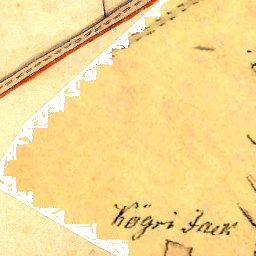 Kögri Jaek